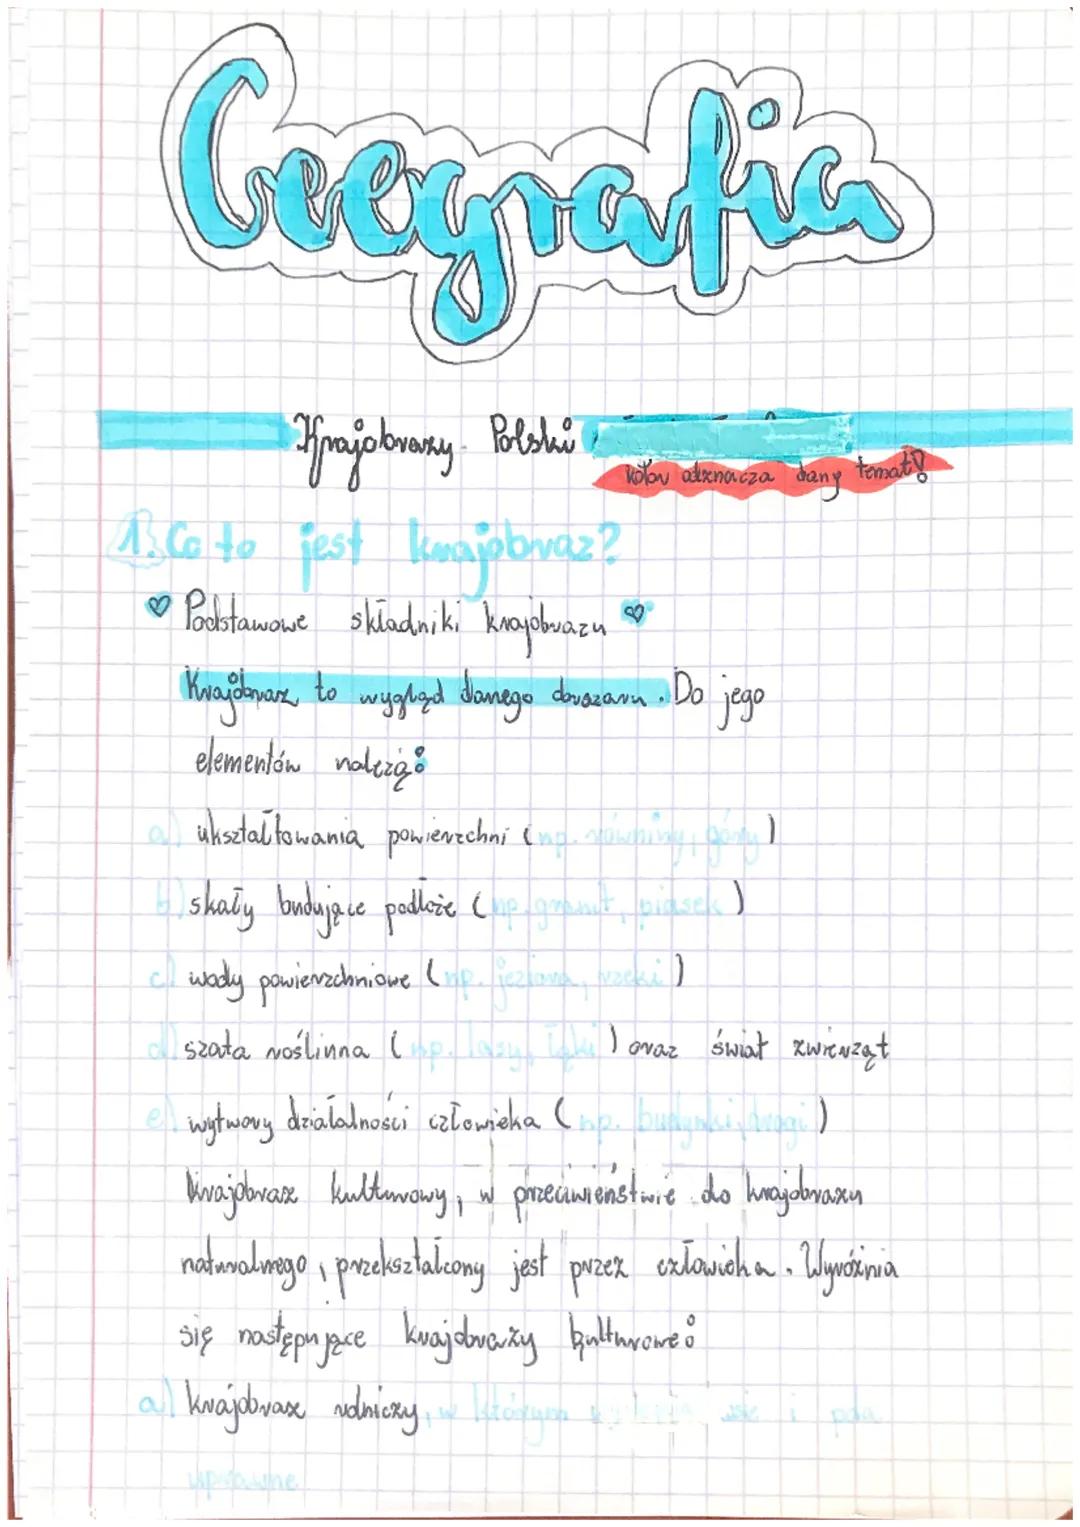 Geografia
Krajobrazy Polski
kolor odznacza dany temat!
1. Co to jest krajobraz?
Podstawowe składniki krajobrazu
Krajobraz to wygląd danego obszaru. Do jego
elementów należą:
a) ukształtowania powierzchni (np. równiny, góry)
b) skały budujące podłoże (np. granit, piasek)
c) wody powierzchniowe (np. jeziora, rzeki)
d) szata roślinna (np. lasy, łąki) oraz świat zwierząt
e) wytwory działalności człowieka (np. budynki, drogi)
Krajobraz kulturowy, w przeciwieństwie do krajobrazu
naturalnego, przekształcony jest przez człowieka. Wyróżnia
się następujące krajobrazy kulturowe:
a) krajobraz rolniczy, w którym wsie i pola
uprawne